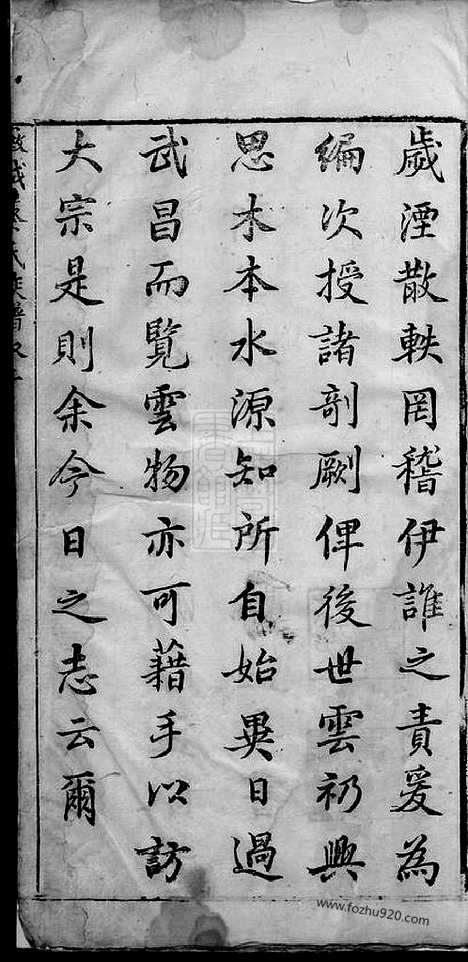 歲湮散軼罔稽伊誰之責爰為
編次授諸剞劂俾後世雲礽興
思木本水源知所自始異日過
武昌而覽雲物亦可藉手以訪
大宗是則余今日之志云爾
氏族譜
www.fozhu920.com